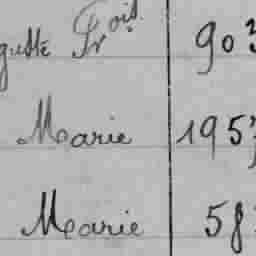 guste Fr ois. 903
Marie 1957
Marie 58